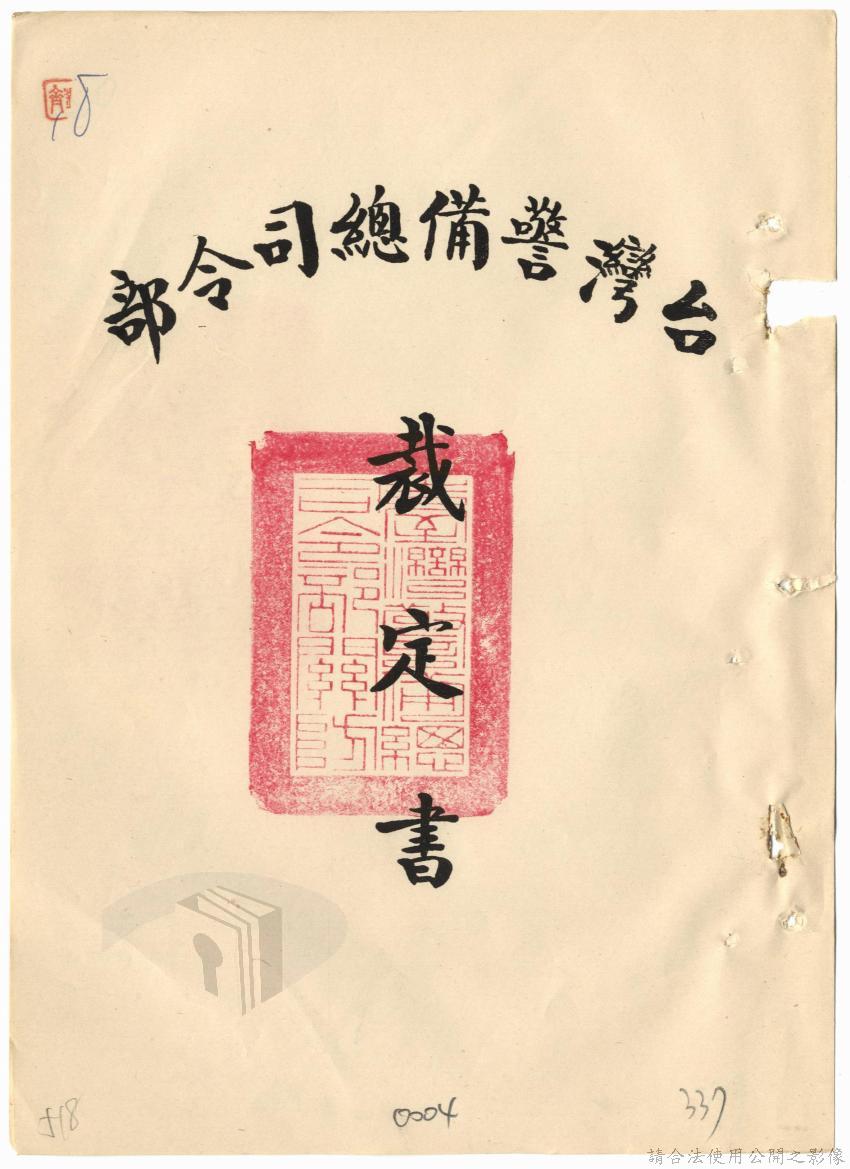 台灣警備總司令部
裁定書
臺灣警備總司令部關防
0004
337
請合法使用公開之影像